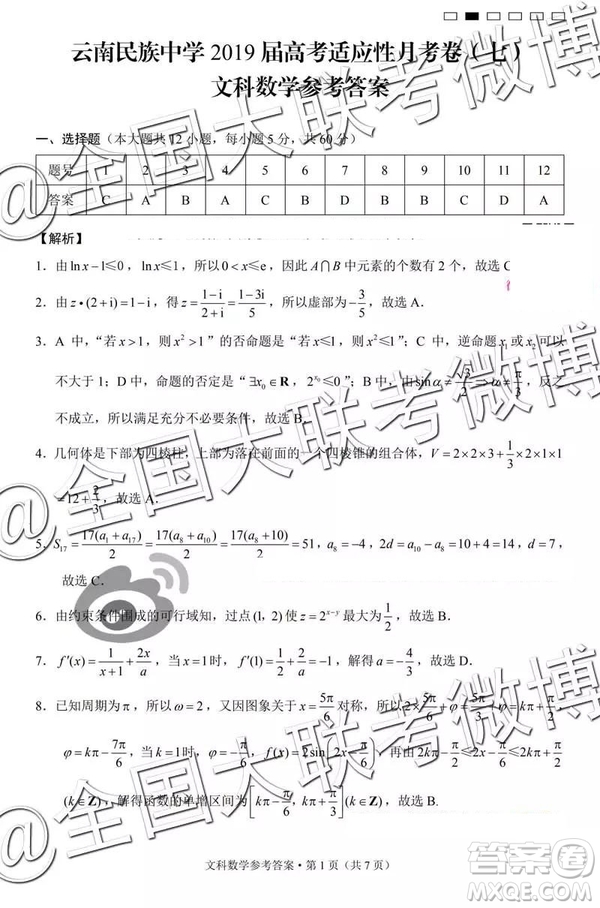 云南民族中学 2019 届高考适应性月考卷（七）
文科数学参考答案
一、选择题（本大题共 12 小题，每小题 5 分，共 60 分）
题号 1 2 3 4 5 6 7 8 9 10 11 12
答案 C A B A C B A B
【解析】
1．由 ln x－1≤0，ln x≤1，所以 0＜x≤e，因此 A∩B 中元素的个数有 2 个，故选 C
2．由 z·(2+i)=1−i，得 z=(1−i)/(2+i)=(1−3i)/5，所以虚部为 −3/5，故选 A．
3．A 中，“若 x＞1，则 x²＞1”的否命题是“若 x≤1，则 x²≤1”；C 中，逆命题 x₁ 或 x₂ 可以
不大于 1；D 中，命题的否定是“∃x₀∈R，2^x₀≤0”；B 中，由 sin α≠√3/2⇒α≠π/3，反之
不成立，所以满足充分不必要条件，故选 B．
4．几何体是下部为四棱柱，上部为落在前面的一个四棱锥的组合体，V=2×2×3+1/3×2×1×1
=12+2/3，故选 A．
5．S₁₇=17(a₁+a₁₇)/2=17(a₈+a₁₀)/2=17(a₈+10)/2=51，a₈=−4，2d=a₁₀−a₈=10+4=14，d=7，
故选 C．
6．由约束条件围成的可行域知，过点 (1, 2) 使 z=2^(x−y) 最大为 1/2，故选 B．
7．f′(x)=1/(x+1)+2x/a，当 x=1 时，f′(1)=1/2+2/a=−1，解得 a=−4/3，故选 A．
8．已知周期为 π，所以 ω=2，又因图象关于 x=5π/6 对称，所以 2×5π/6+φ=3π/2+φ=kπ+π/2，
φ=kπ−7π/6，φ=−π/6，f(x)=2sin[2x−π/6]，再由 2kπ−π/2≤2x−π/6≤2kπ+π/2
(k∈Z)，解得函数的单增区间为[kπ−π/6，kπ+π/3](k∈Z)，故选 B．
文科数学参考答案·第 1 页（共 7 页）
@全国大联考微博
@全国大联考微博
@全国大联考微博
答案圈
MXQE.COM